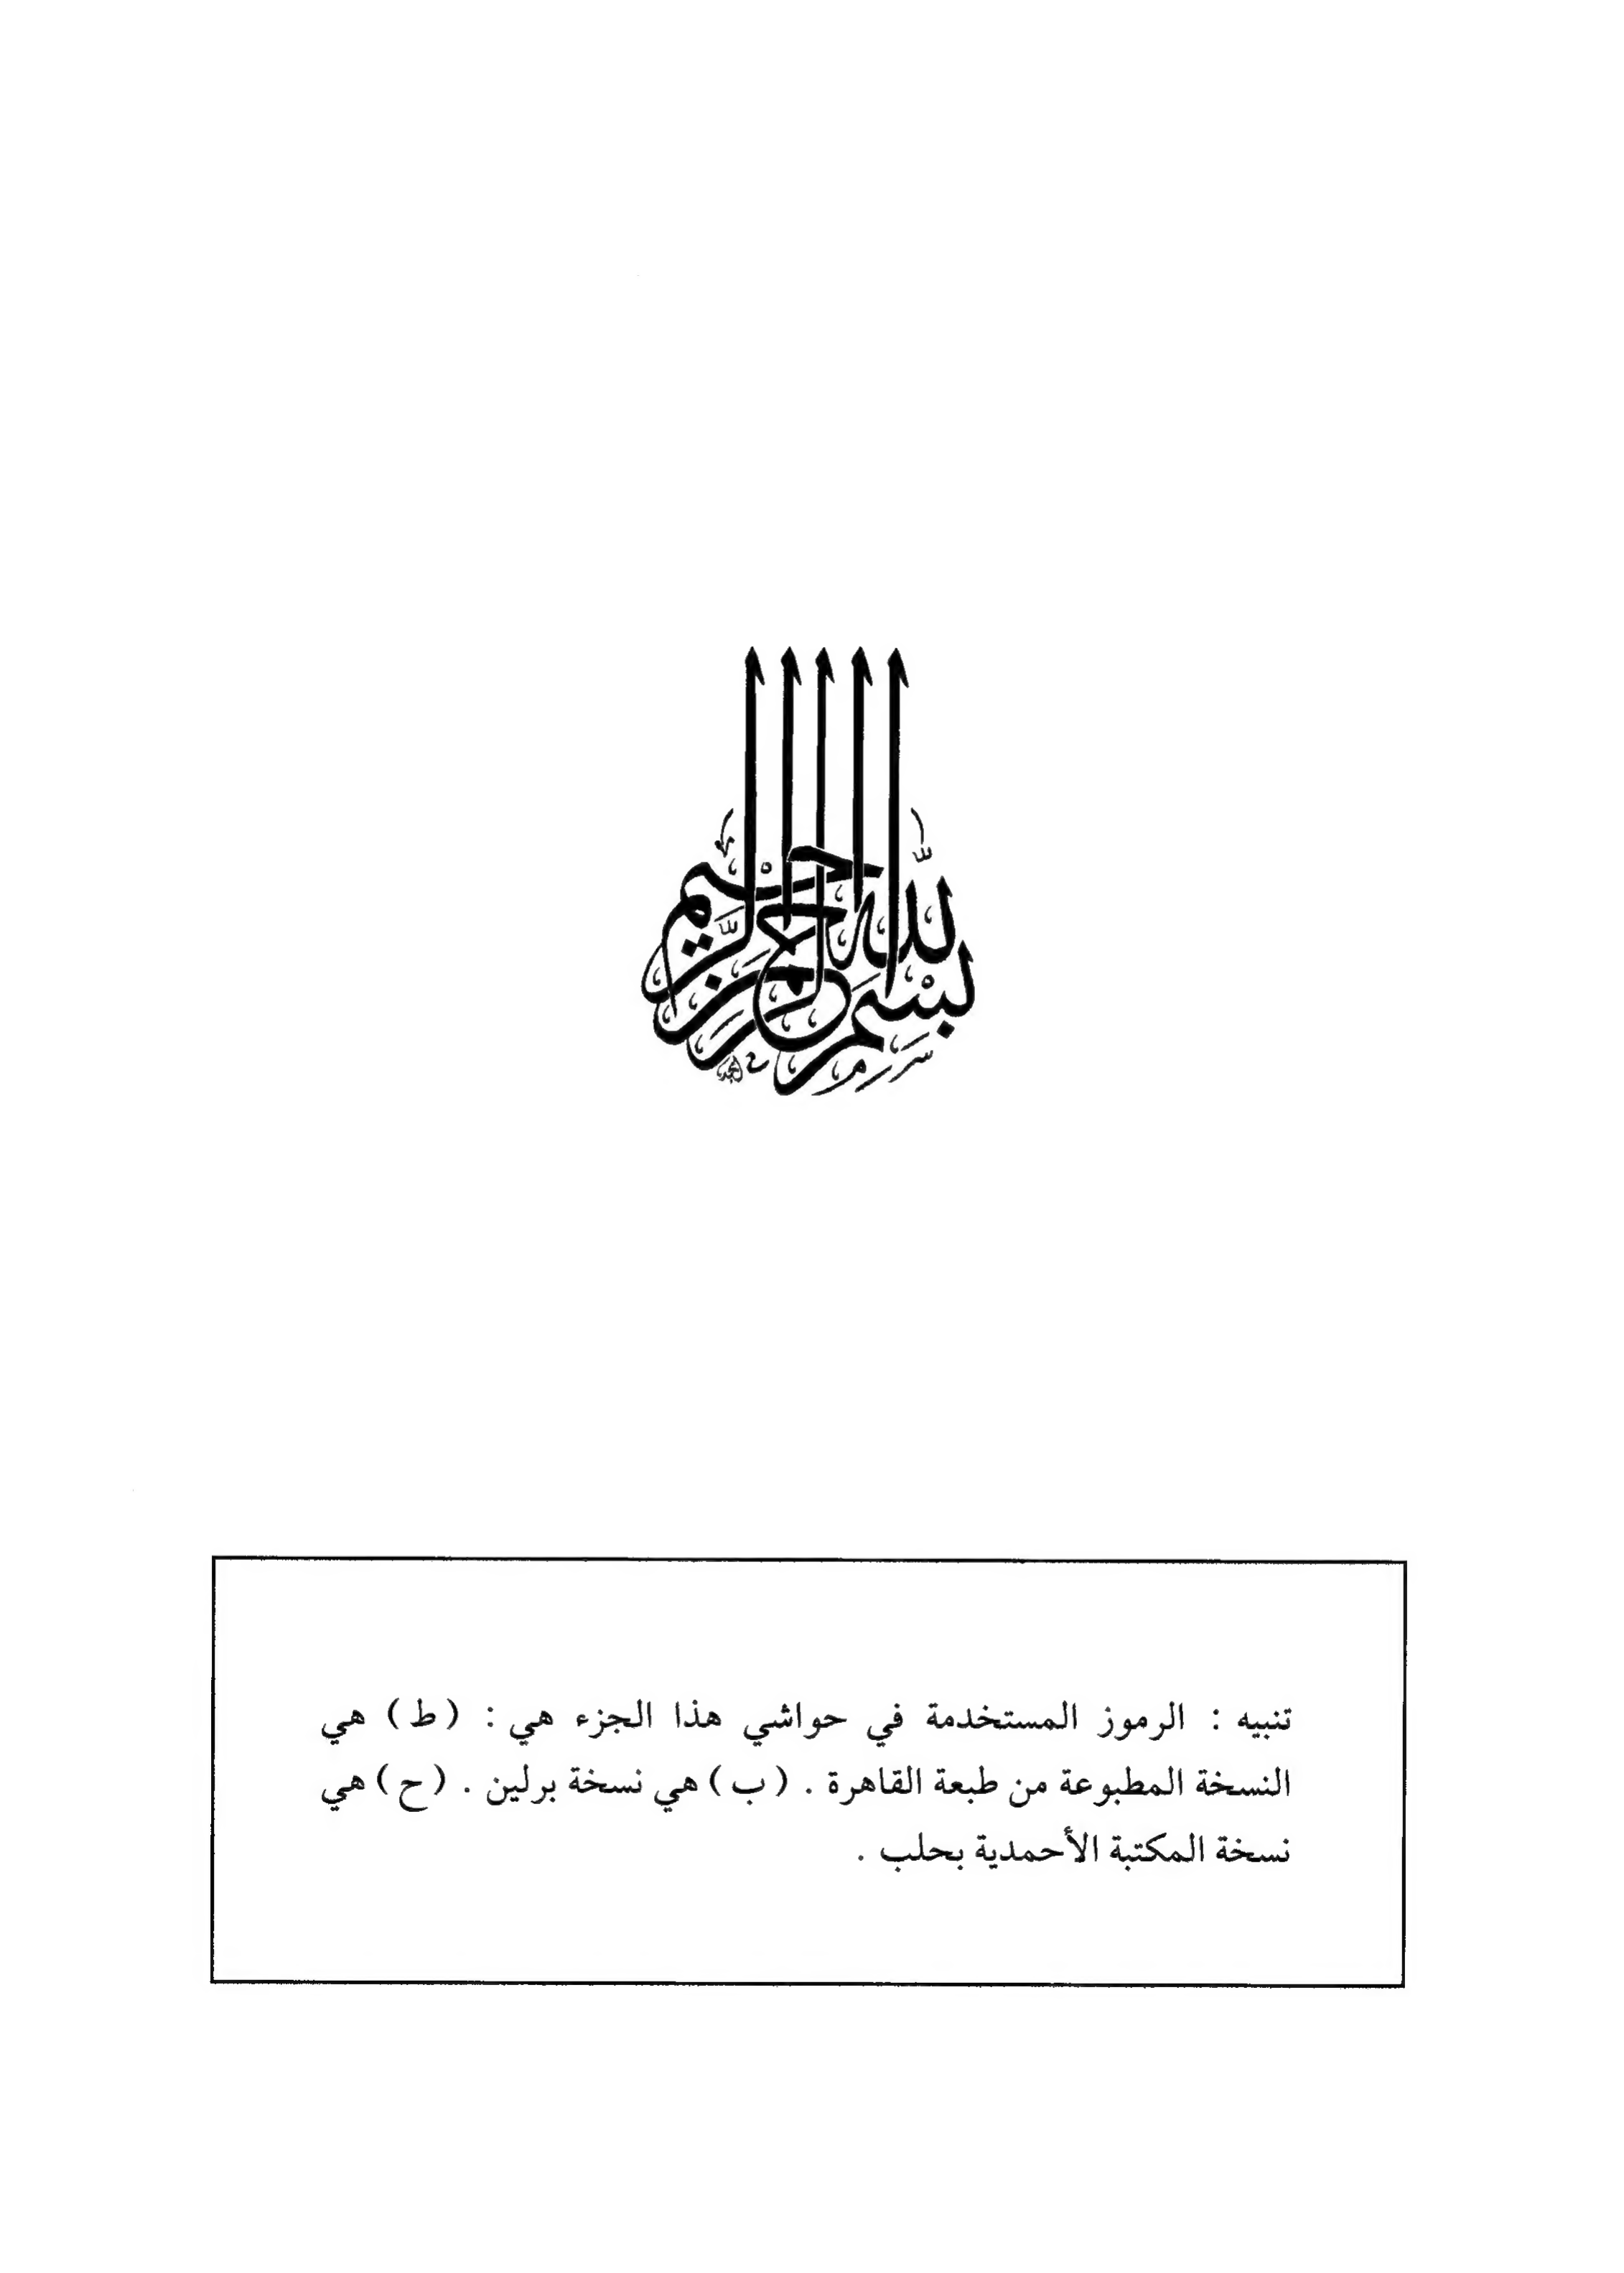 بسم الله الرحمن الرحيم
تنبيه : الرموز المستخدمة في حواشي هذا الجزء هي : ( ط ) هي
النسخة المطبوعة من طبعة القاهرة . ( ب ) هي نسخة برلين . ( ح ) هي
نسخة المكتبة الأحمدية بحلب .